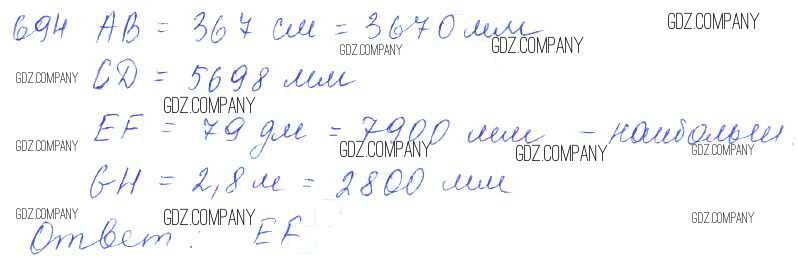 694 AB = 367 см = 3670 мм
CD = 5698 мм
EF = 79 дм = 7900 мм – наибольш.
GH = 2,8 м = 2800 мм
Ответ: EF
GDZ.COMPANY
GDZ.COMPANY
GDZ.COMPANY
GDZ.COMPANY
GDZ.COMPANY
GDZ.COMPANY
GDZ.COMPANY
GDZ.COMPANY
GDZ.COMPANY
GDZ.COMPANY
GDZ.COMPANY
GDZ.COMPANY